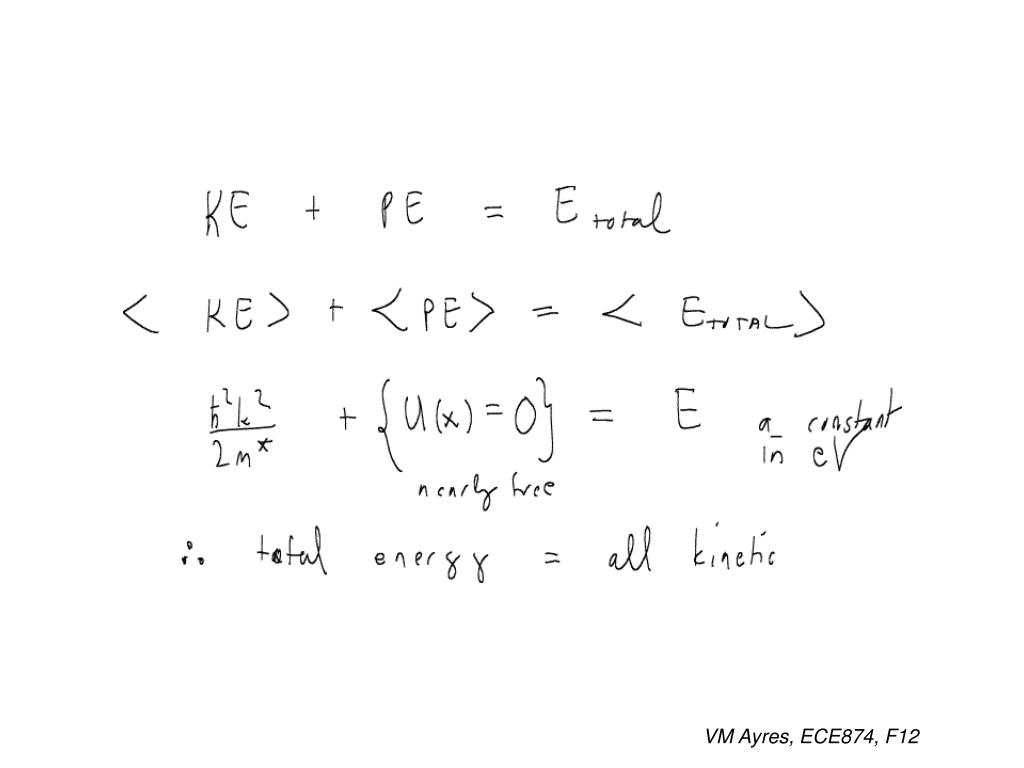 KE + PE = E total
< KE > + < PE > = < E TOTAL >
ħ²k²/2m* + { U(x) = 0 } = E a constant in eV
nearly free
∴ total energy = all kinetic
VM Ayres, ECE874, F12